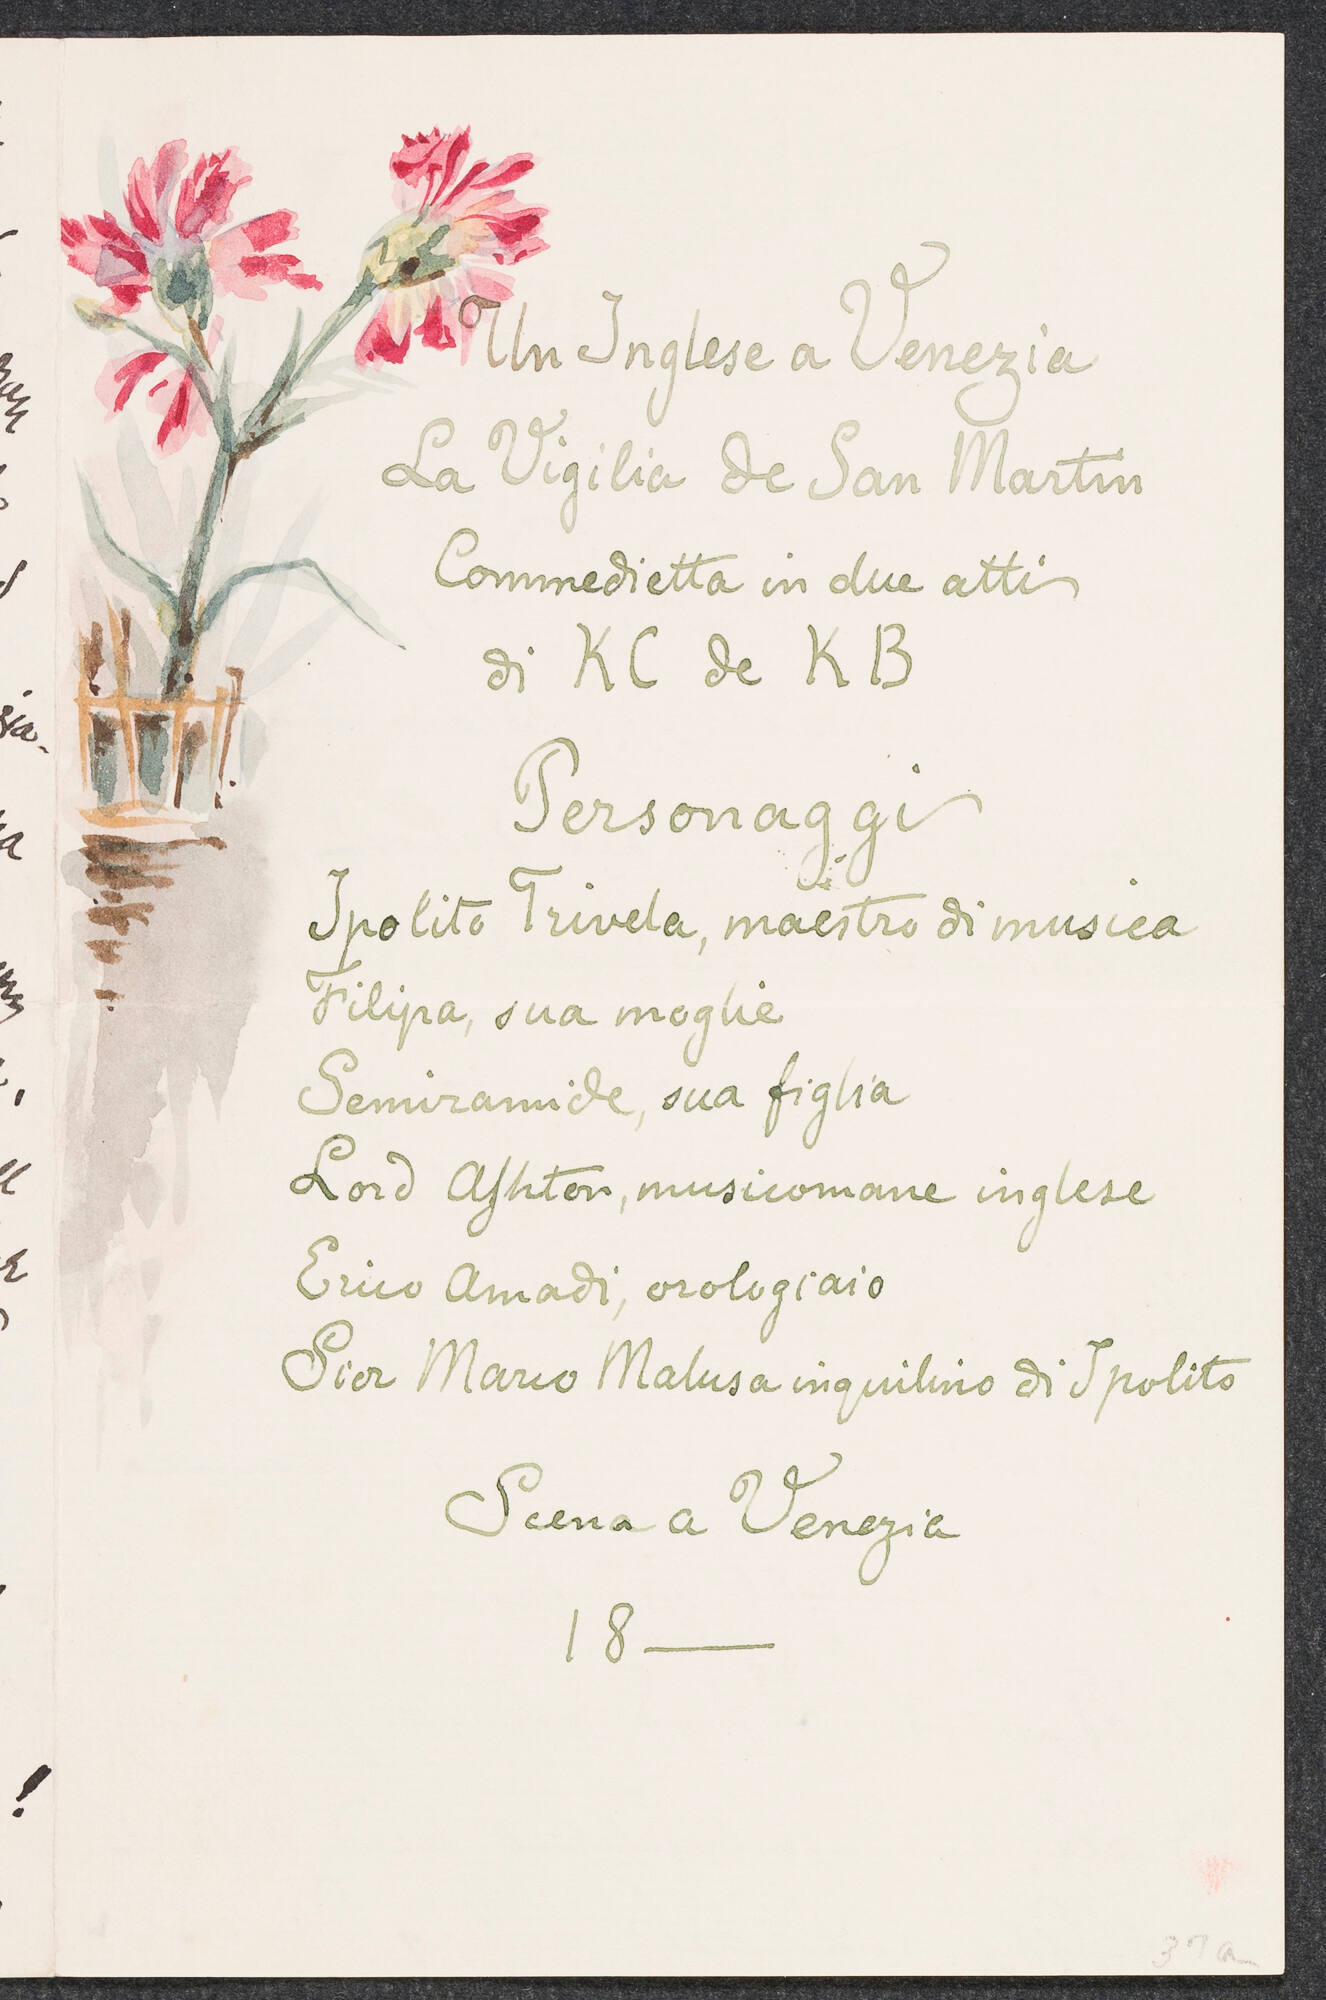 Un Inglese a Venezia
La Vigilia de San Martin
Commedietta in due atti
di KC de KB
Personaggi
Ipolito Trivela, maestro di musica
Filipa, sua moglie
Semiramide, sua figlia
Lord Ashton, musicomane inglese
Erico Amadi, orologiaio
Sior Marco Malusa inquilino di Ipolito
Scena a Venezia
18—
37a